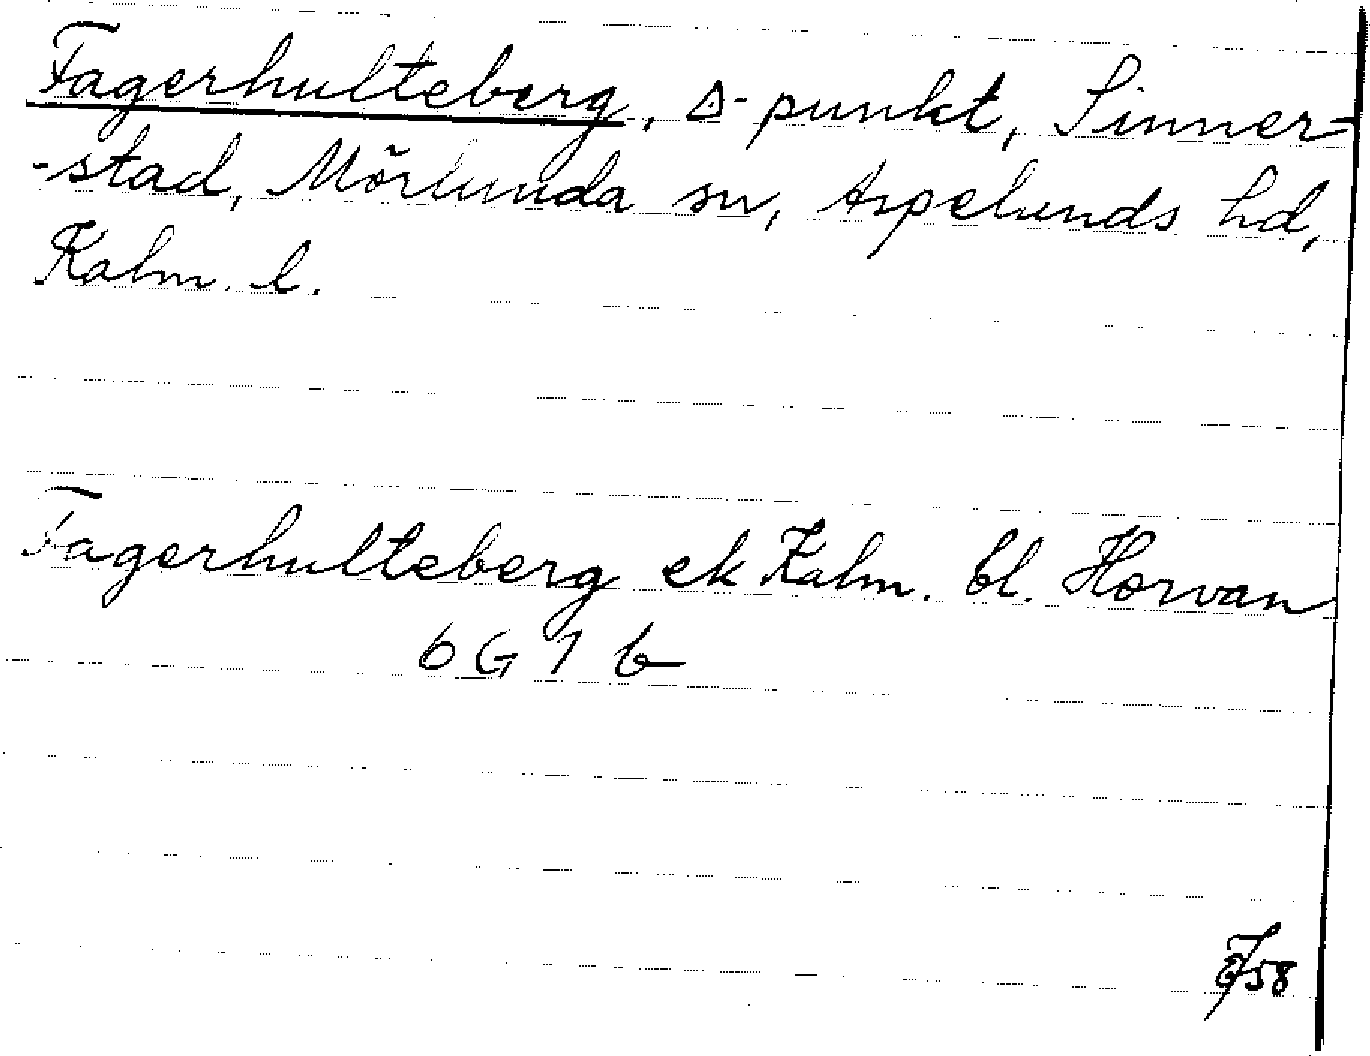 Fagerhulteberg, △-punkt, Sinner=
-stad, Mörlunda sn, Aspelunds hd,
Kalm. l.
Fagerhulteberg ek Kalm. bl. Horvan
6 G 1 b
58